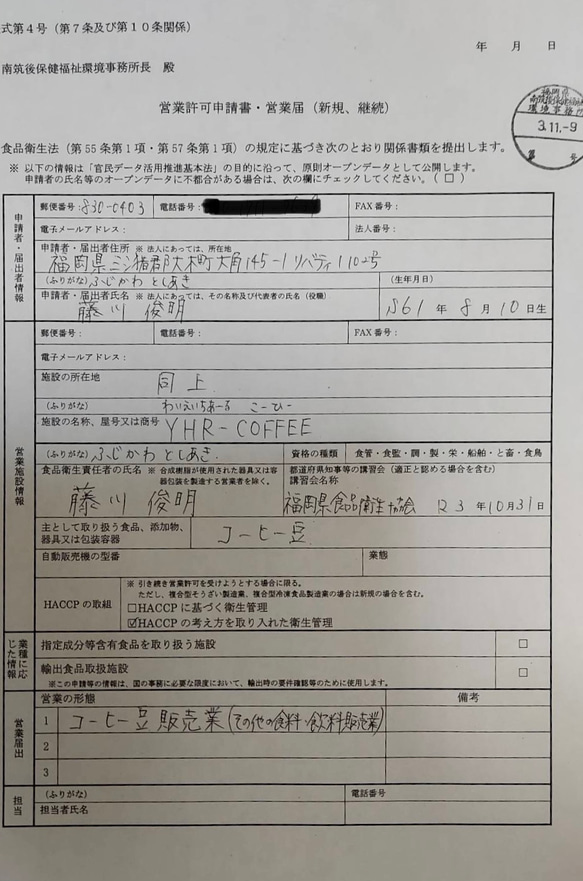 式第4号（第7条及び第10条関係）
年　月　日
南筑後保健福祉環境事務所長　殿
営業許可申請書・営業届（新規、継続）
福岡県
環境事務所
3.11.-9
第　号
食品衛生法（第55条第1項・第57条第1項）の規定に基づき次のとおり関係書類を提出します。
※ 以下の情報は「官民データ活用推進基本法」の目的に沿って、原則オープンデータとして公開します。
申請者の氏名等のオープンデータに不都合がある場合は、次の欄にチェックしてください。（□）
申請者・届出者情報
郵便番号：830-0403　電話番号：　FAX番号：
電子メールアドレス：　法人番号：
申請者・届出者住所　※ 法人にあっては、所在地
福岡県三潴郡大木町大角145-1 リバティ110号
(ふりがな) ふじかわ としあき　（生年月日）
申請者・届出者氏名　※ 法人にあっては、その名称及び代表者の氏名（役職）
藤川 俊明　S61年8月10日生
営業施設情報
郵便番号：　電話番号：　FAX番号：
電子メールアドレス：
施設の所在地
同上
(ふりがな)　わいえいちあーる こーひー
施設の名称、屋号又は商号　YHR-COFFEE
(ふりがな) ふじかわ としあき　資格の種類　食管・食監・調・製・栄・船舶・と畜・食鳥
食品衛生責任者の氏名　※ 合成樹脂が使用された器具又は容器包装を製造する営業者を除く。
都道府県知事等の講習会（適正と認める場合を含む）
講習会名称
藤川 俊明　福岡県食品衛生協会　R3年10月31日
主として取り扱う食品、添加物、
器具又は包装容器　コーヒー豆
自動販売機の型番　業態
HACCPの取組
※ 引き続き営業許可を受けようとする場合に限る。
ただし、複合型そうざい製造業、複合型冷凍食品製造業の場合は新規の場合を含む。
□HACCPに基づく衛生管理
☑HACCPの考え方を取り入れた衛生管理
業種に応じた情報
指定成分等含有食品を取り扱う施設　□
輸出食品取扱施設　□
※この申請等の情報は、国の事務に必要な限度において、輸出時の要件確認等のために使用します。
営業届出
営業の形態　備考
1　コーヒー豆販売業（その他の食料・飲料販売業）
2
3
担当
(ふりがな)　電話番号
担当者氏名